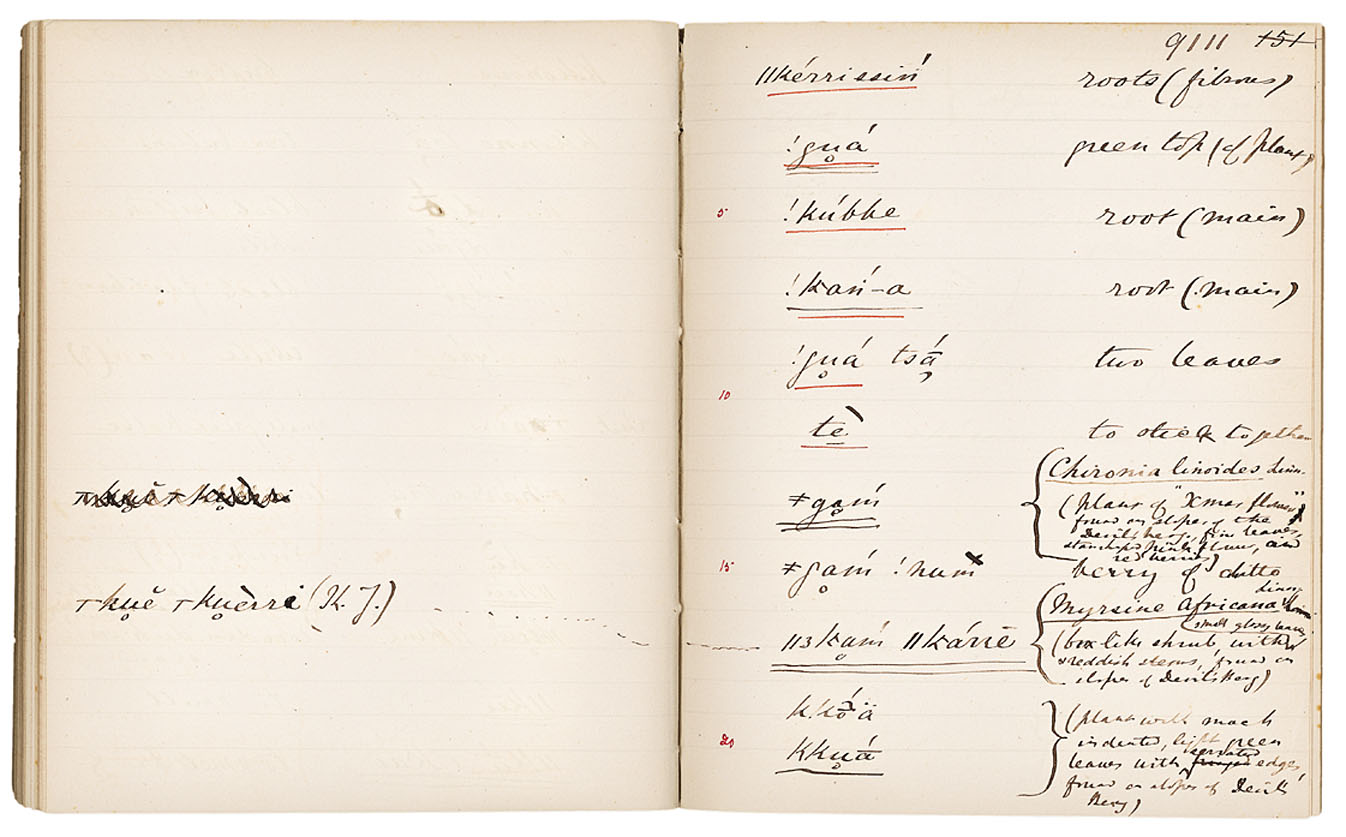 Ͳkuĕ Ͳkuèrri (K. J.)
9111 151
ǁkérrissiń roots (fibrous)
!guá green top (of plant)
5 !kúbbe root (main)
!kań-a root (main)
!guá tsá̄ two leaves
10
tè to stick together
Chironia linoides Linn.
ǂgaḿ (plant of "Xmas flower"
found on slopes of the
Devil's berg, fine leaves,
starshaped pink flower, and
red berries)
15 ǂgaḿ !num berry of ditto
Myrsine Africana Linn.
(small glossy leaves)
ǁ3kaḿ ǁkárrĕ (box like shrub, with
reddish stems, found on
slopes of Devil's Berg)
k.kŏ́ä (plant with much
indented, light green
20 kkuá̄ leaves with serrated fringed edges
found on slopes of Devil's
Berg)